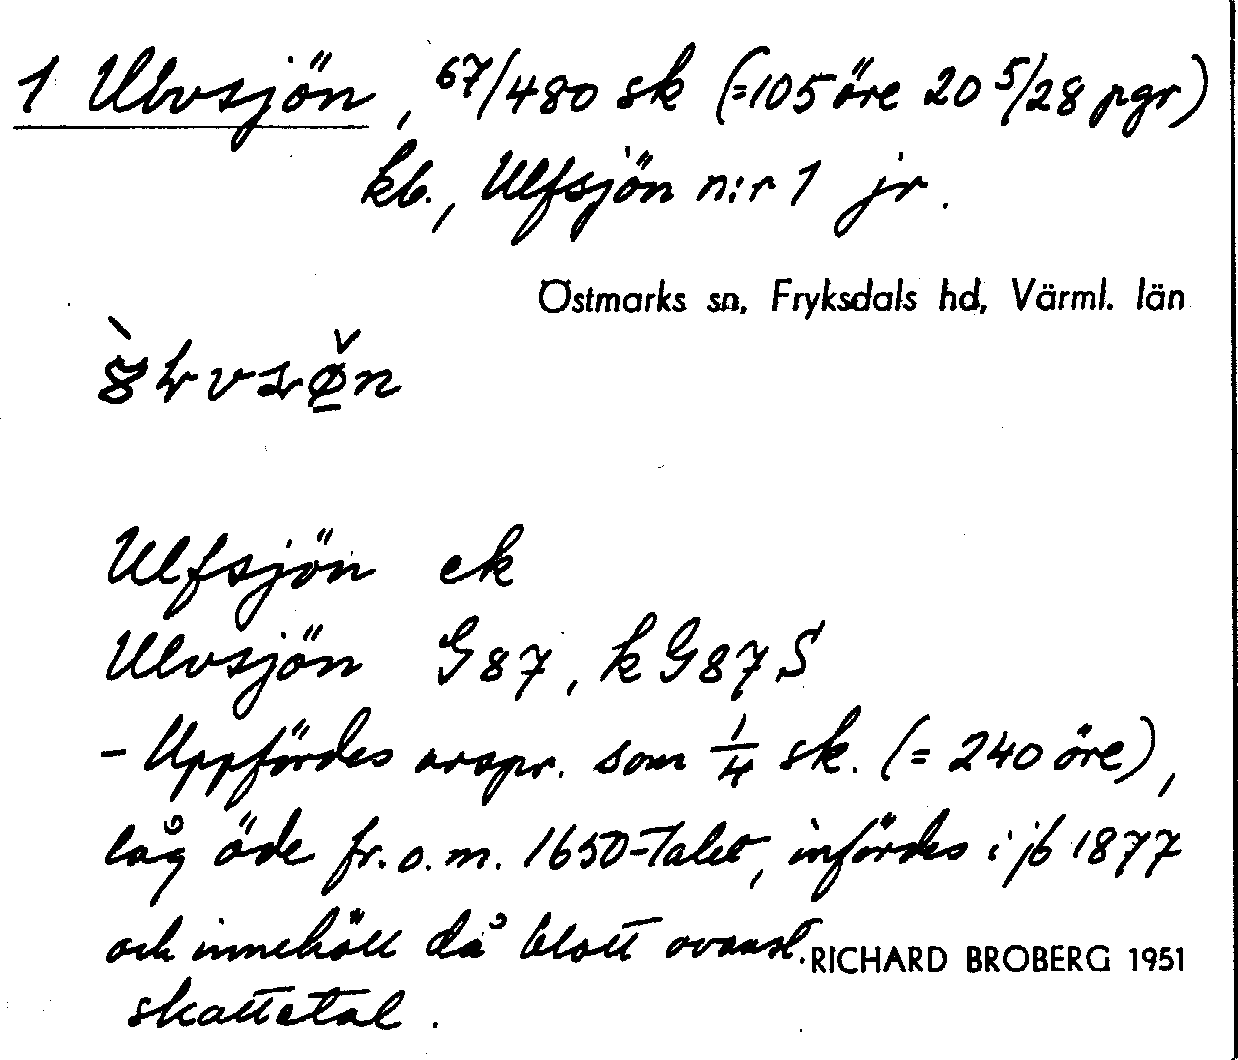 1 Ulvsjön, 67/480 sk (=105 öre 20 5/28 pgr)
kb., Ulfsjön n:r 1 jr.
Östmarks sn, Fryksdals hd, Värml. län
Ulfsjön ek
Ulvsjön G87, k G87 S
- Uppfördes urspr. som 1/4 sk. (= 240 öre),
låg öde fr.o.m. 1650-talet, infördes i jb 1877
och innehöll då blott ovanst.
RICHARD BROBERG 1951
skattetal.